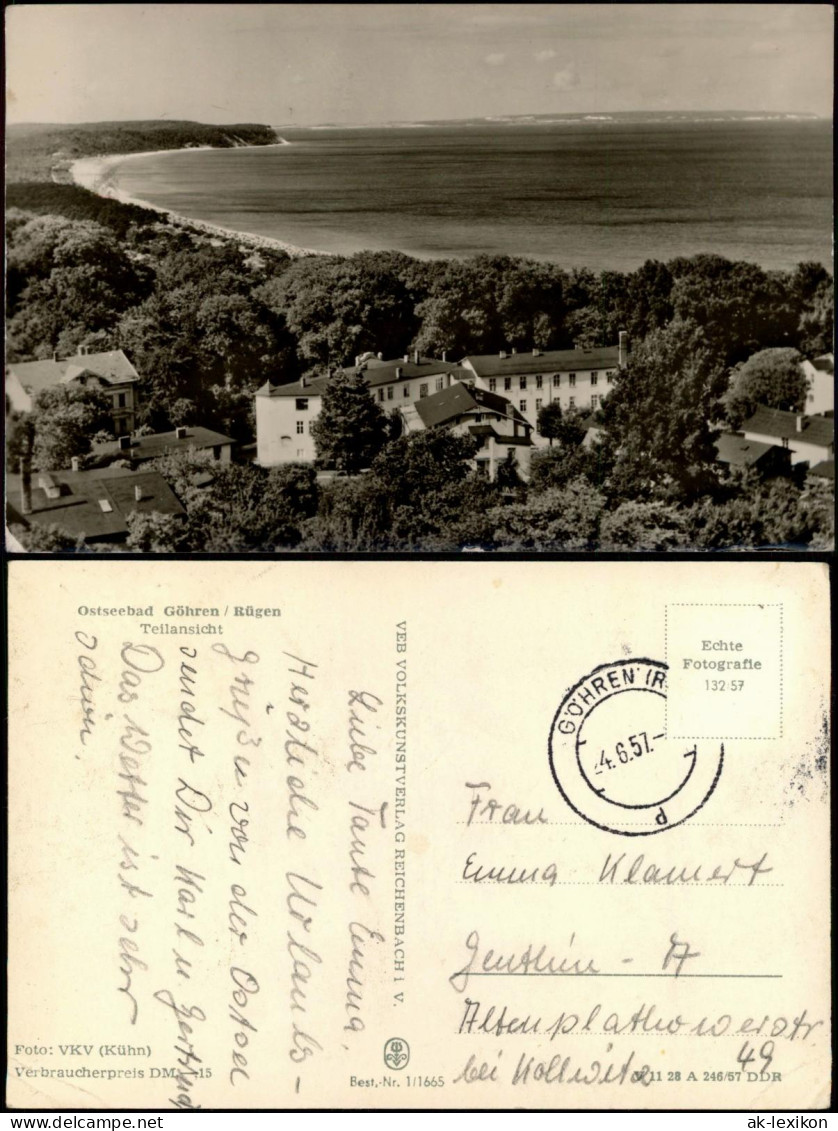 Ostseebad Göhren / Rügen
Teilansicht
Liebe Tante Emma,
Herzliche Urlaubs-
grüße von der Ostsee
sendet Dir Karl u. Gertrud
Das Wetter ist sehr
schön.
Foto: VKV (Kühn)
Verbraucherpreis DM -,15
VEB VOLKSKUNSTVERLAG REICHENBACH i. V.
Best.-Nr. 1/1665
Echte
Fotografie
132/57
GÖHREN (R
-4.6.57.-
d
Frau
Emma Klamert
Genthin - A
Altenplathowerstr
49
bei Kollwitz
11 28 A 246/57 DDR
ak-lexikon